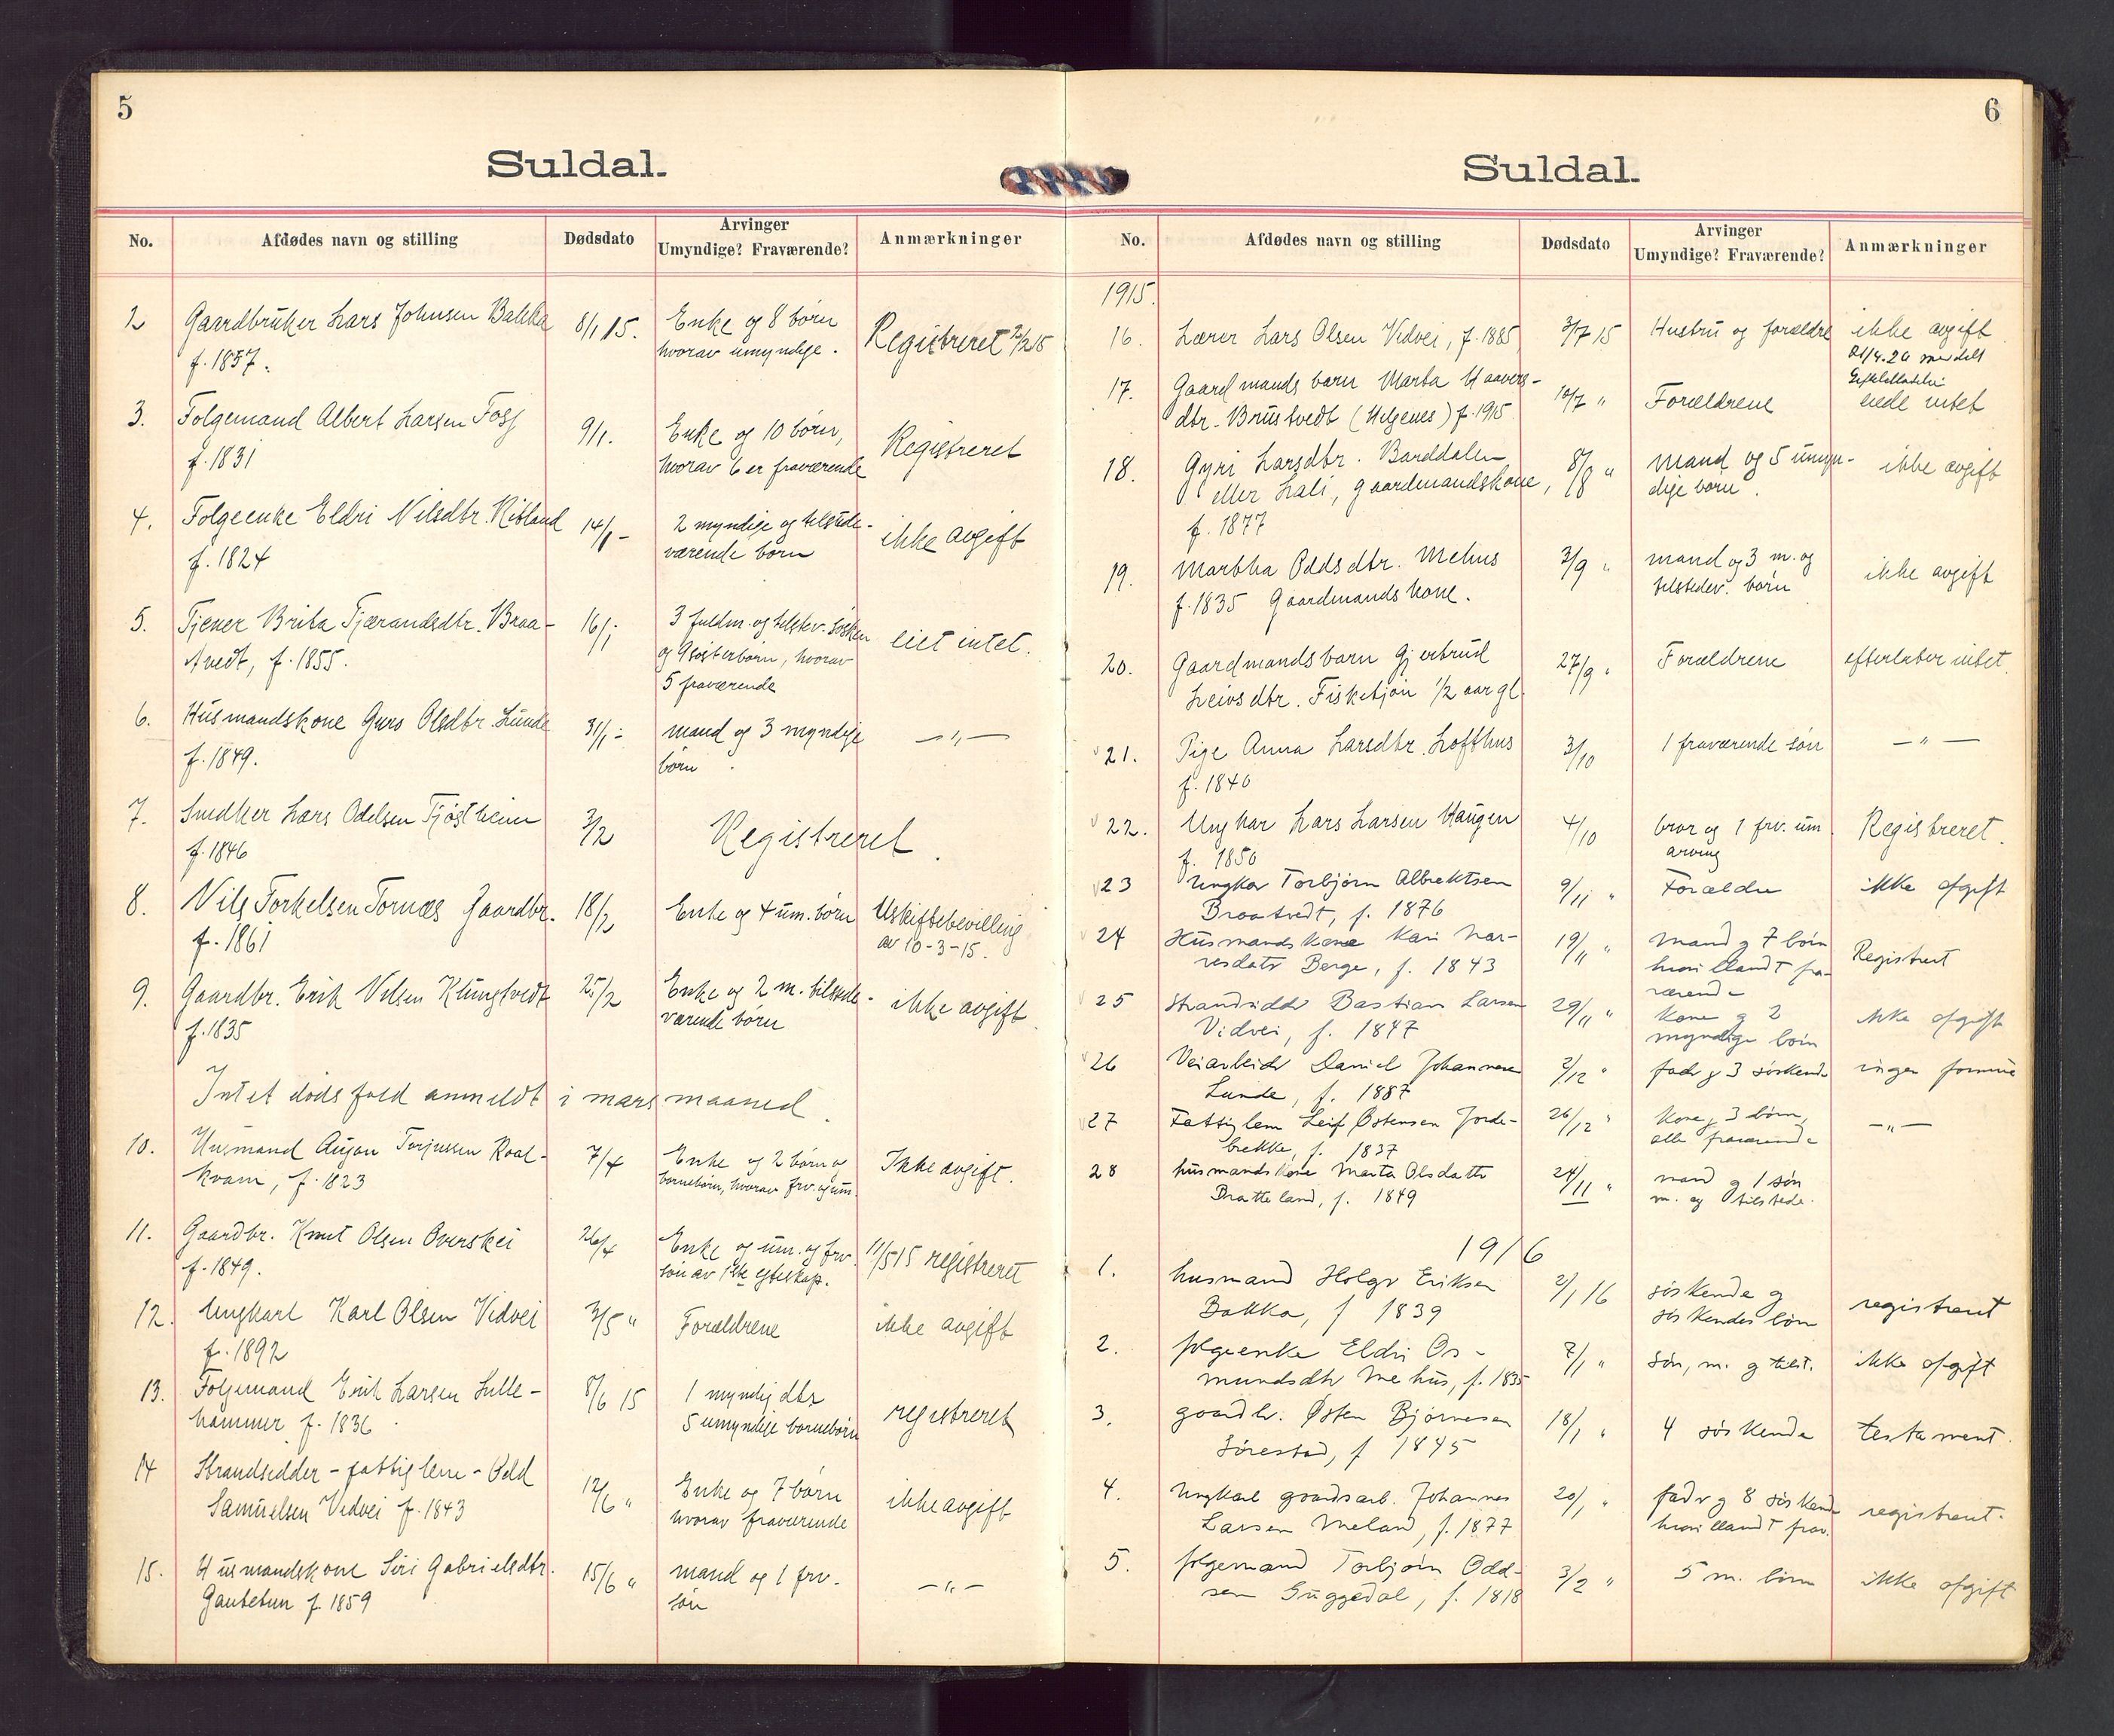 5
Suldal.
No. Afdødes navn og stilling Dødsdato Arvinger Umyndige? Fraværende? Anmærkninger
2 Gaardbruker Lars Johnsen Bakka 8/1 15. Enke og 8 børn Registreret
f. 1857. hvorav umyndige.
3. Følgemand Albert Larsen Foss 9/1. Enke og 10 børn, Registreret
f. 1831 hvorav 6 er fraværende
4. Følgeenke Eldri Nilsdtr. Ritland 14/1 - 2 myndige og tilstede- ikke avgift
f. 1824 værende børn
5. Tjener Brita Tjærandsdtr. Braa- 16/1 3 fuldm. og tilstev. søsken eiet intet.
tvedt, f. 1855. og 9 søsterbørn, hvorav
5 fraværende
6. Husmandskone Guro Olsdtr. Lunde 31/1 - mand og 3 myndige —„—
f. 1849. børn
7. Snedker Lars Odelsen Tjøstheim 3/2 Registreret.
f. 1846
8. Nils Torkelsen Tornæs Gaardbr. 18/2 Enke og 4 um. børn Uskiftebevilling
f. 1861 av 10-3-15.
9. Gaardbr. Erik Nilsen Klungtvedt 25/2 Enke og 2 m. tilstede- ikke avgift
f. 1835 værende børn
Intet dødsfald anmeldt i mars maaned.
10. Husmand Torjussen Roal- 7/4 Enke og 2 børn og Ikke avgift.
kvam, f. 1823 børnebørn, hvorav frv. og um.
11. Gaardbr. Knut Olsen Overskei 26/4 Enke og um. og frv. 11/5 15 registreret
f. 1849. søn av 1ste egteskap.
12. Ungkarl Karl Olsen Vidvei 3/5 " Forældrene ikke avgift
f. 1892
13. Følgemand Erik Larsen Lille- 8/6 15 1 myndig dtr registreret
hammer f. 1836 5 umyndige børnebørn
14 Strandsidder - fattiglem - Odd 12/6 " Enke og 7 børn ikke avgift
Samuelsen Vidvei f. 1843 hvorav fraværende
15. Husmandskone Siri Gabrielsdtr. 15/6 " mand og 1 frv. —„—
Gautetun f. 1859 søn
6
Suldal.
No. Afdødes navn og stilling Dødsdato Arvinger Umyndige? Fraværende? Anmærkninger
1915.
16. Lærer Lars Olsen Vidvei, f. 1885 3/7 15 Hustru og forældre ikke avgift
21/4.20 meddelt
17. Gaardmands barn Marta Haavers- 10/7 " Forældrene eiede intet
dtr. Brustvedt (Helgenes) f. 1915
18. Gyri Larsdtr. Barddalen 8/8 " Mand og 5 umyn- ikke avgift
eller Lali, gaardmandskone, dige børn.
f. 1877
19. Martha Oddsdtr. Mehus 3/9 " mand og 3 m. og ikke avgift
f. 1835 Gaardmandskone. tilstedev. børn
20. Gaardmandsbarn Gjertrud 27/9 " Forældrene efterlater intet.
Leivsdtr. Fisketjøn 1/2 aar gl.
21. Pige Anna Larsdtr. Loffthus 3/10 1 fraværende søn —„—
f. 1840
22. Ungkar Lars Larsen Haugen 4/10 bror og 1 frv. um. Registreret.
f. 1850 arving
23 Ungkar Torbjørn Albrektsen 9/11 " Forældre ikke afgift
Braatvedt, f. 1876
24 Husmandskone Kari Nar- 19/11 " Mand og 7 børn Registrert
vesdatr Berge, f. 1843 hvoriblandt fra-
værende
25 Strandsidder Bastian Larsen 29/11 " Kone og 2 ikke afgift
Vidvei, f. 1847 myndige børn
26 Veiarbeider Daniel Johannesen 2/12 " fader og 3 søskende ingen formue
Lunde, f. 1887
27 Fattiglem Leif Østensen Jorde- 26/12 " Kone og 3 børn, —„—
brekke, f. 1837 alle fraværende
28 husmandskone Marta Olsdatter 24/11 " mand og 1 søn
Bratteland, f. 1849 m. og tilstede.
1916
1. husmand Holger Eriksen 2/1 16 søskende og registreret
Bakka, f 1839 søskendes børn
2. følgeenke Eldri Os- 7/1 " søn, m. og tilst. ikke afgift
mundsdtr Mehus, f. 1835
3. gaardbr. Østen Bjørnesen 18/1 " 4 søskende testament.
Sørestad, f 1845
4. Ungkarl gaardsarb. Johannes 20/1 " fader og 8 søskende registreret.
Larsen Meland, f. 1877 hvoriblandt frav.
5. følgemand Torbjørn Odd- 3/2 " 5 m. børn ikke afgift
sen Guggedal, f. 1818